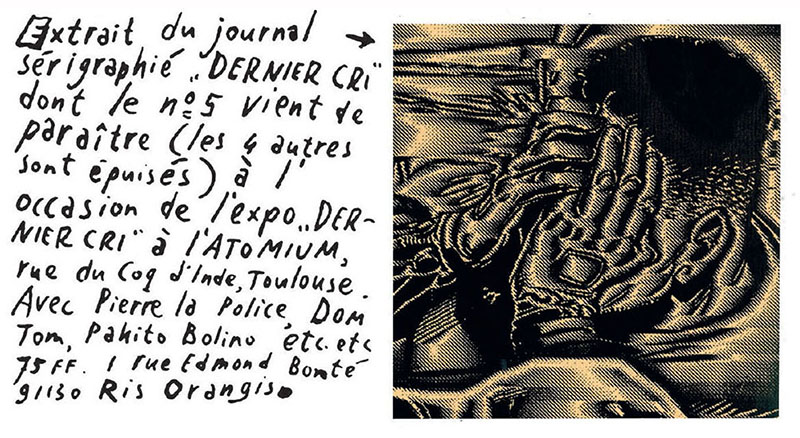 Extrait du journal →
sérigraphié „DERNIER CRI"
dont le nº5 vient de
paraître (les 4 autres
sont épuisés) à l'
occasion de l'expo „DER-
NIER CRI" à l'ATOMIUM,
rue du Coq d'Inde, Toulouse.
Avec Pierre la Police, DOM
Tom, Pakito Bolino etc. etc
75 FF. 1 rue Edmond Bonté
91130 Ris Orangis.